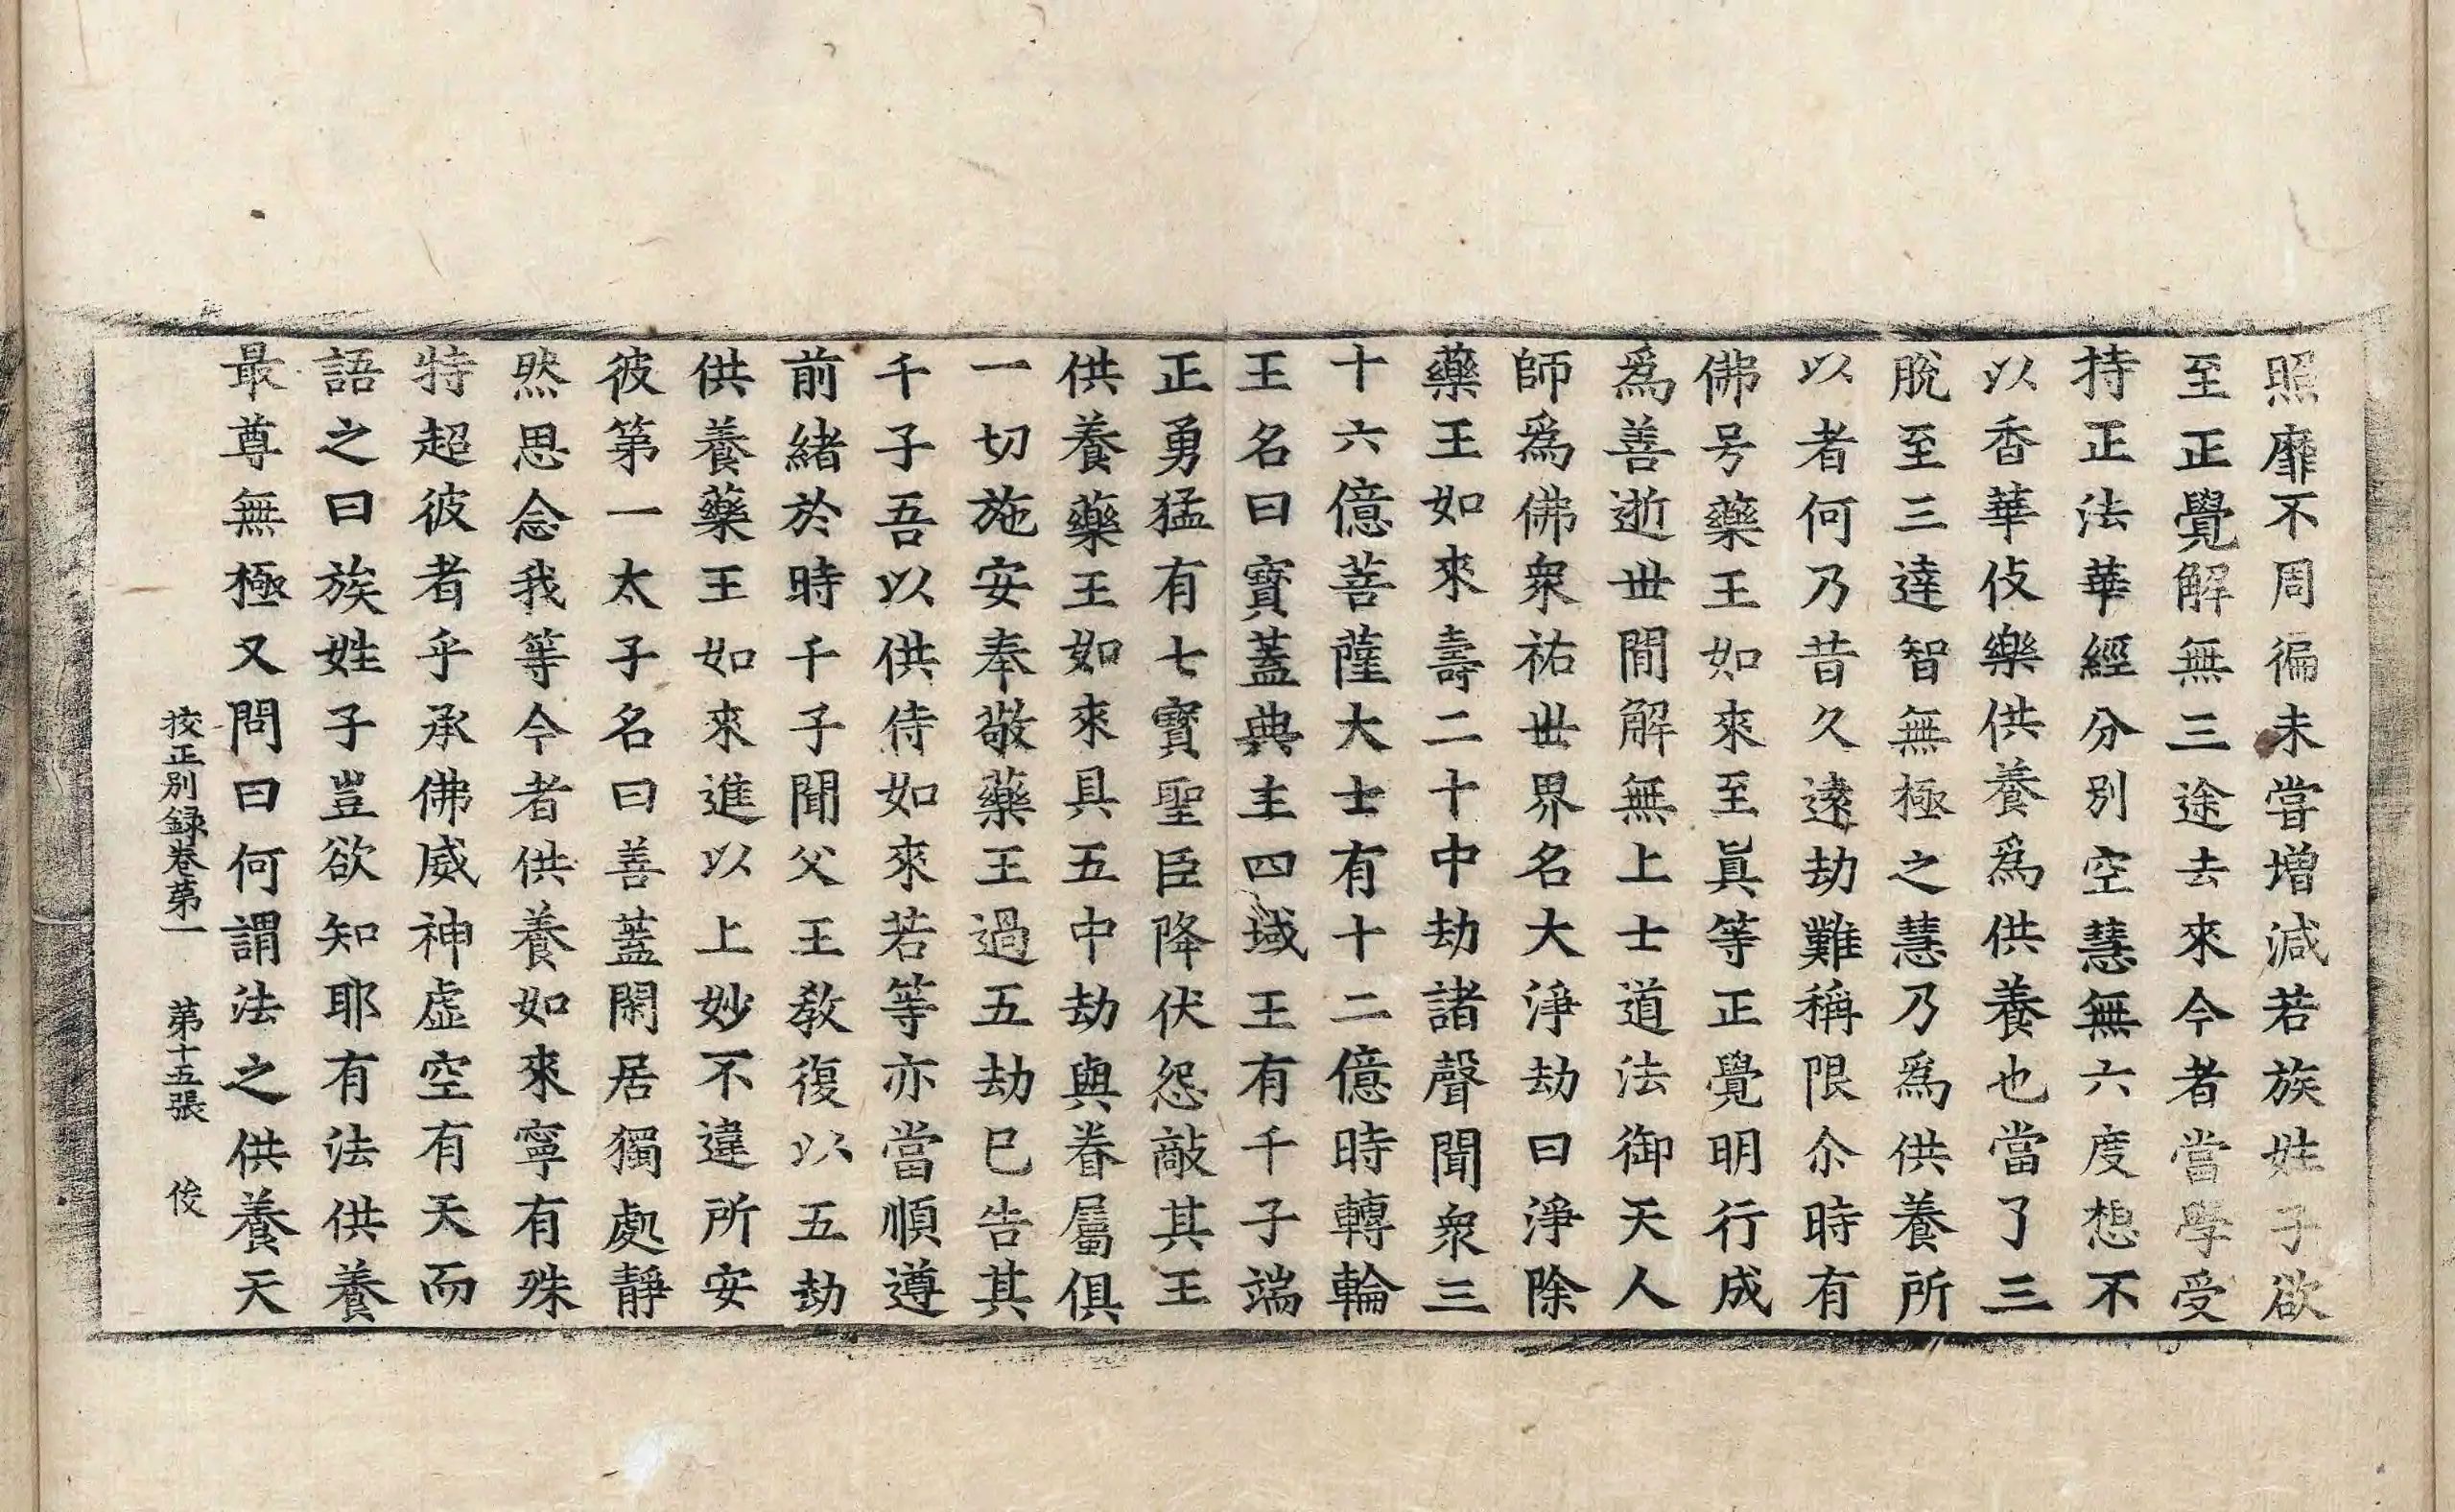 照靡不周徧未甞增減若族姓子欲
至正覺解無三途去來今者當學受
持正法華經分別空慧無六度想不
以香華伎樂供養爲供養也當了三
脫至三達智無極之慧乃爲供養所
以者何乃昔久遠劫難稱限尒時有
佛号藥王如來至眞等正覺明行成
爲善逝丗閒解無上士道法御天人
師爲佛衆祐丗界名大淨劫曰淨除
藥王如來壽二十中劫諸聲聞衆三
十六億菩薩大士有十二億時轉輪
王名曰寳蓋典主四域王有千子端
正勇猛有七寳聖臣降伏怨敵其王
供養藥王如來具五中劫與眷屬俱
一切施安奉敬藥王過五劫已告其
千子吾以供侍如來若等亦當順遵
前緒於時千子聞父王敎復以五劫
供養藥王如來進以上妙不違所安
彼第一太子名曰善蓋閑居獨處靜
然思念我等今者供養如來寧有殊
特超彼者乎承佛威神虛空有天而
語之曰族姓子豈欲知耶有法供養
最尊無極又問曰何謂法之供養天
挍正别録卷苐一 苐十五張 俊